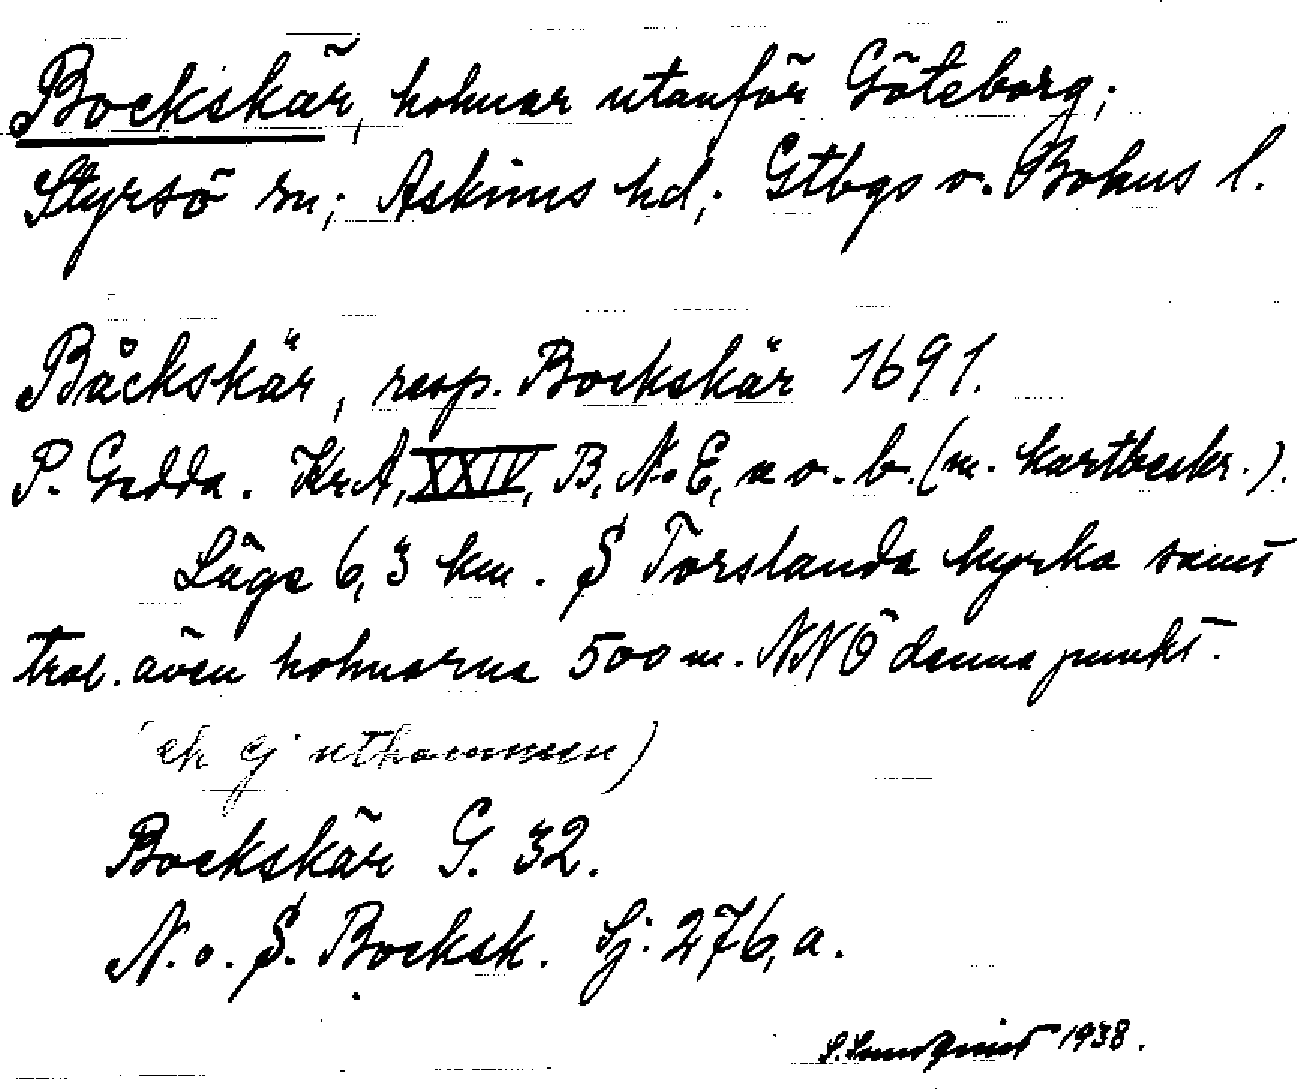 Bockskär, holmar utanför Göteborg;
Styrsö sn; Askims hd; Gtbgs o. Bohus l.
Båckskär, resp. Bockskär 1691.
P. Gedda. Kr.A, XXIV, B, N:o E, a o. b. (m. kartbeskr.).
Läge 6,3 km. S Torslanda kyrka samt
trol. även holmarna 500 m. NNÖ denna punkt.
(ek ej utkommen)
Bockskär G. 32.
N. o. S. Bocksk. Sj. 276, a.
1938.